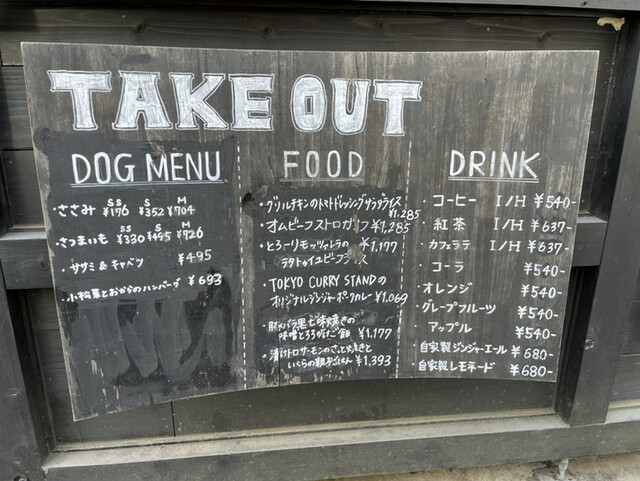 TAKE OUT
DOG MENU
SS S M
・ささみ ¥176 ¥352 ¥704
SS S M
・さつまいも ¥330 ¥495 ¥726
・ササミ & キャベツ ¥495
・小松菜とおからのハンバーグ ¥693
FOOD
・グリルチキンのトマトドレッシングサラダライス
¥1,285
・オムビーフストロガノフ ¥1,285
・とろーりモッツァレラの ¥1,177
ラタトゥイユビーフソース
・TOKYO CURRY STANDの
オリジナルジンジャーポークカレー ¥1,069
・豚バラ黒七味焼きの
味噌とろろがけご飯 ¥1,177
・漬けトロサーモンのさっと焼きと
いくらの親子ごはん ¥1,393
DRINK
・コーヒー I/H ¥540-
・紅茶 I/H ¥637-
・カフェラテ I/H ¥637-
・コーラ ¥540-
・オレンジ ¥540-
・グレープフルーツ ¥540-
・アップル ¥540-
・自家製ジンジャーエール ¥680-
・自家製レモネード ¥680-